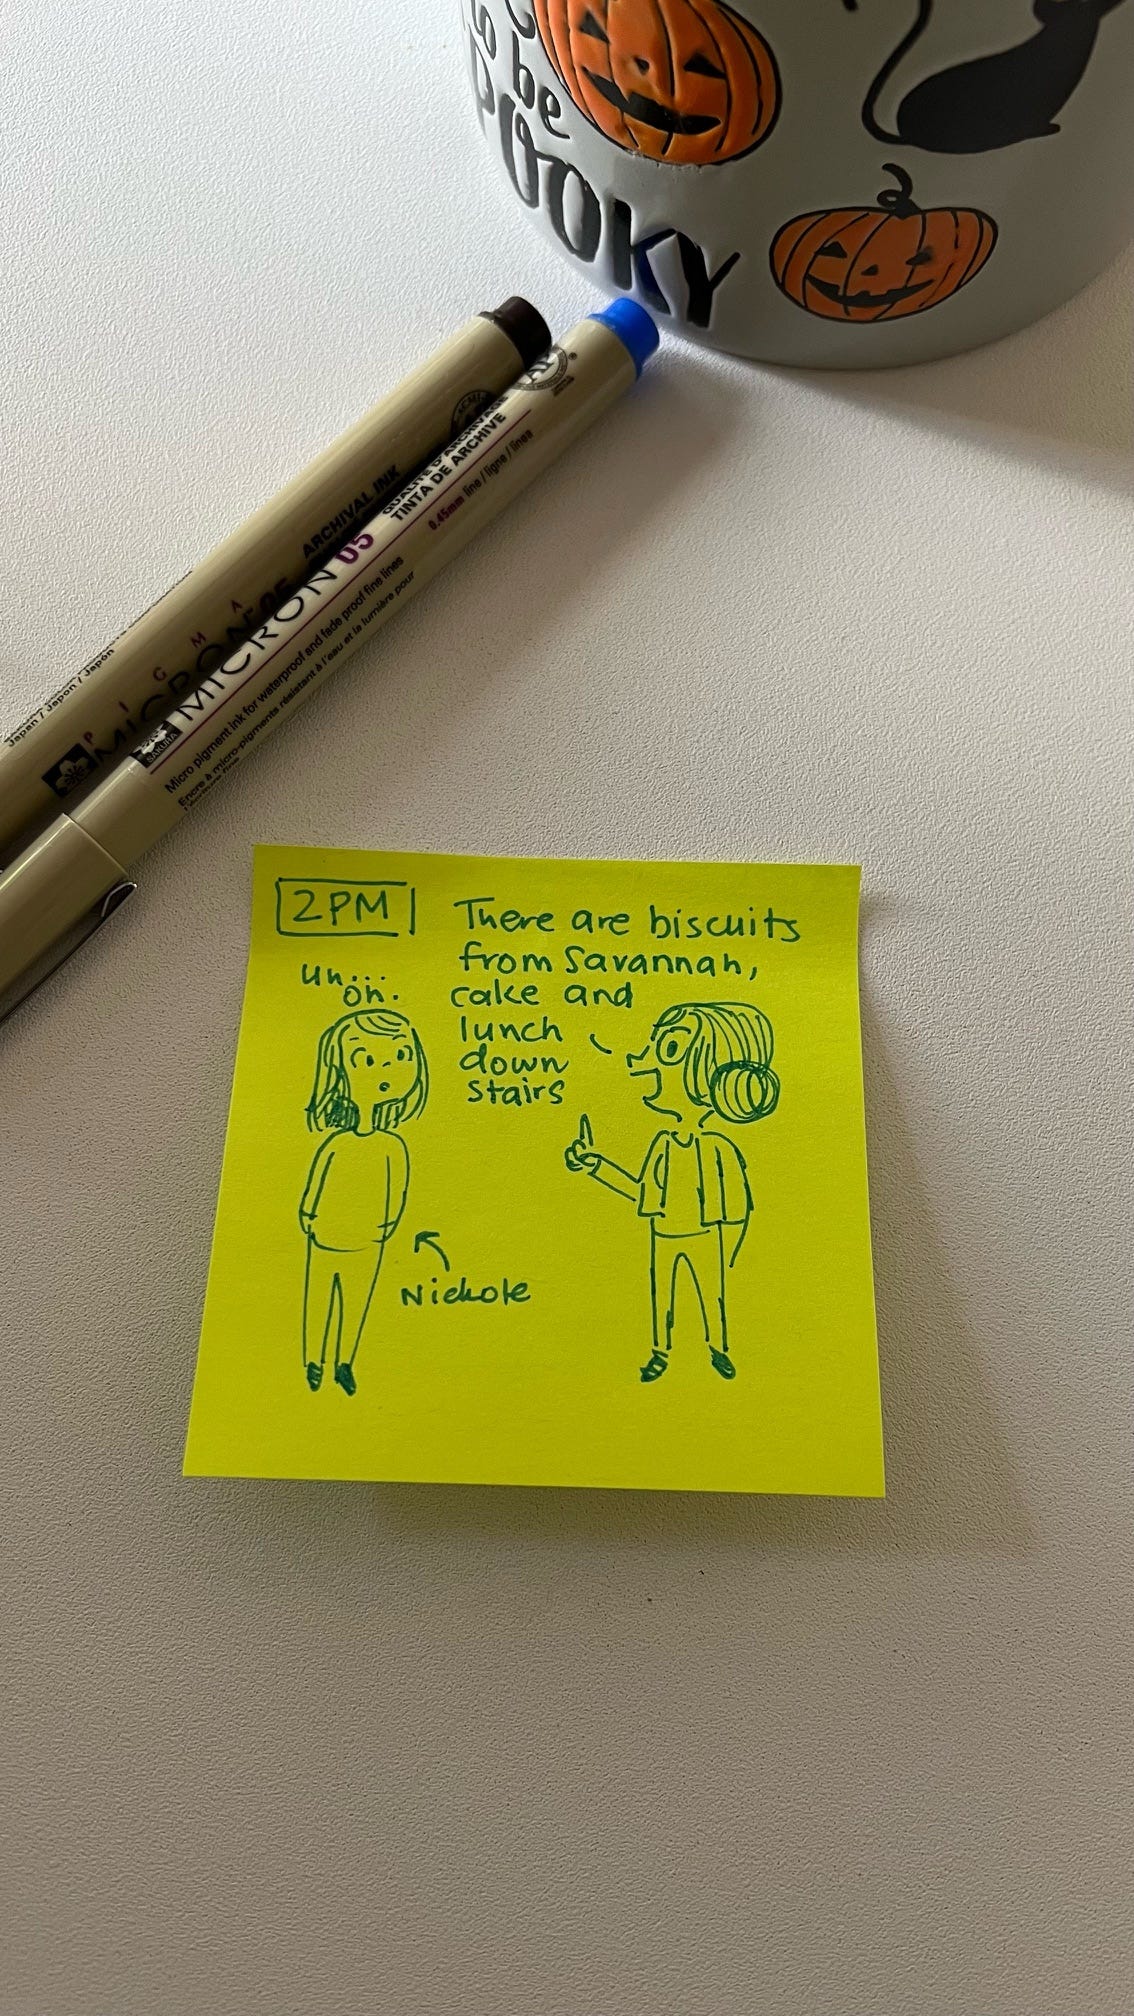 to be
SPOOKY
ARCHIVAL INK
QUALITÉ D'ARCHIVAGE
TINTA DE ARCHIVE
0.45mm line / ligne / lines
PIGMA
MICRON 05
MICRON 05
SAKURA
Micro pigment ink for waterproof and fade proof fine lines
Encre à micro-pigments résistant à l'eau et la lumière pour
Japan / Japon / Japón
2PM
There are biscuits
from Savannah,
cake and
lunch
down
stairs
Uh...
oh.
Nickole